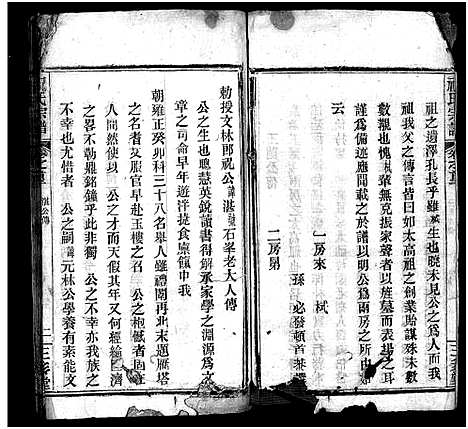 祖之遺澤孔長乎雖
生也晚未見公之為人而
祖我父之傳言皆曰以如太高祖之創業貽謀殊未數
數覯也愧
輩無克振家聲者以廬墓而表揚之耳
謹為偏述應聞載之於譜以明公為兩房之所由出
云
一房來
栻
孫
必發頓首
二房第
勅授文林郎祝公
湛
石峯老大人傳
公之生也聰慧英銳讀書得解承家學之淵源為名
章之司命早年遊泮援食廩餼中我
朝雍正癸卯科三十八名舉人雖禮闈再北未題雁塔
之名者
叟服官早赴玉樓之召
公之抱憾者固在
人間矣使以
公之才而天假其年又何經綸匡濟
之不勒鼎銘鐘乎此非獨
公之不幸亦我族之
不幸也尤惜者
公之嗣
元林公學養有素能文
祝氏宗譜
湛公傳